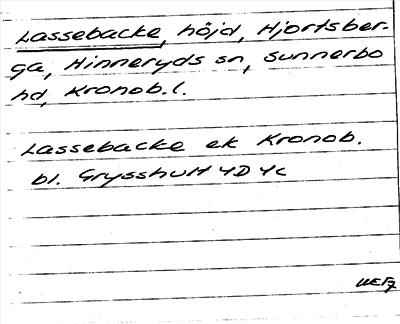 Lassebacke, höjd, Hjortsber-
ga, Hinneryds sn, Sunnerbo
hd, Kronob. l.
Lassebacke ek Kronob.
bl. Grysshult 4D 4c